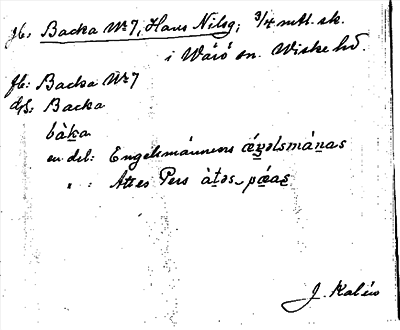 jb: Backa Nr 7, Hans Nilsg; 3/4 mtl. sk.
i Wärö sn. Wiske hd.
jb: Backa Nr 7
ds: Backa
bàk̲a
en del: Engelsmännens ǽŋəlsmánas
" : Attes Pers àtəs-pǽas
J. Kalén